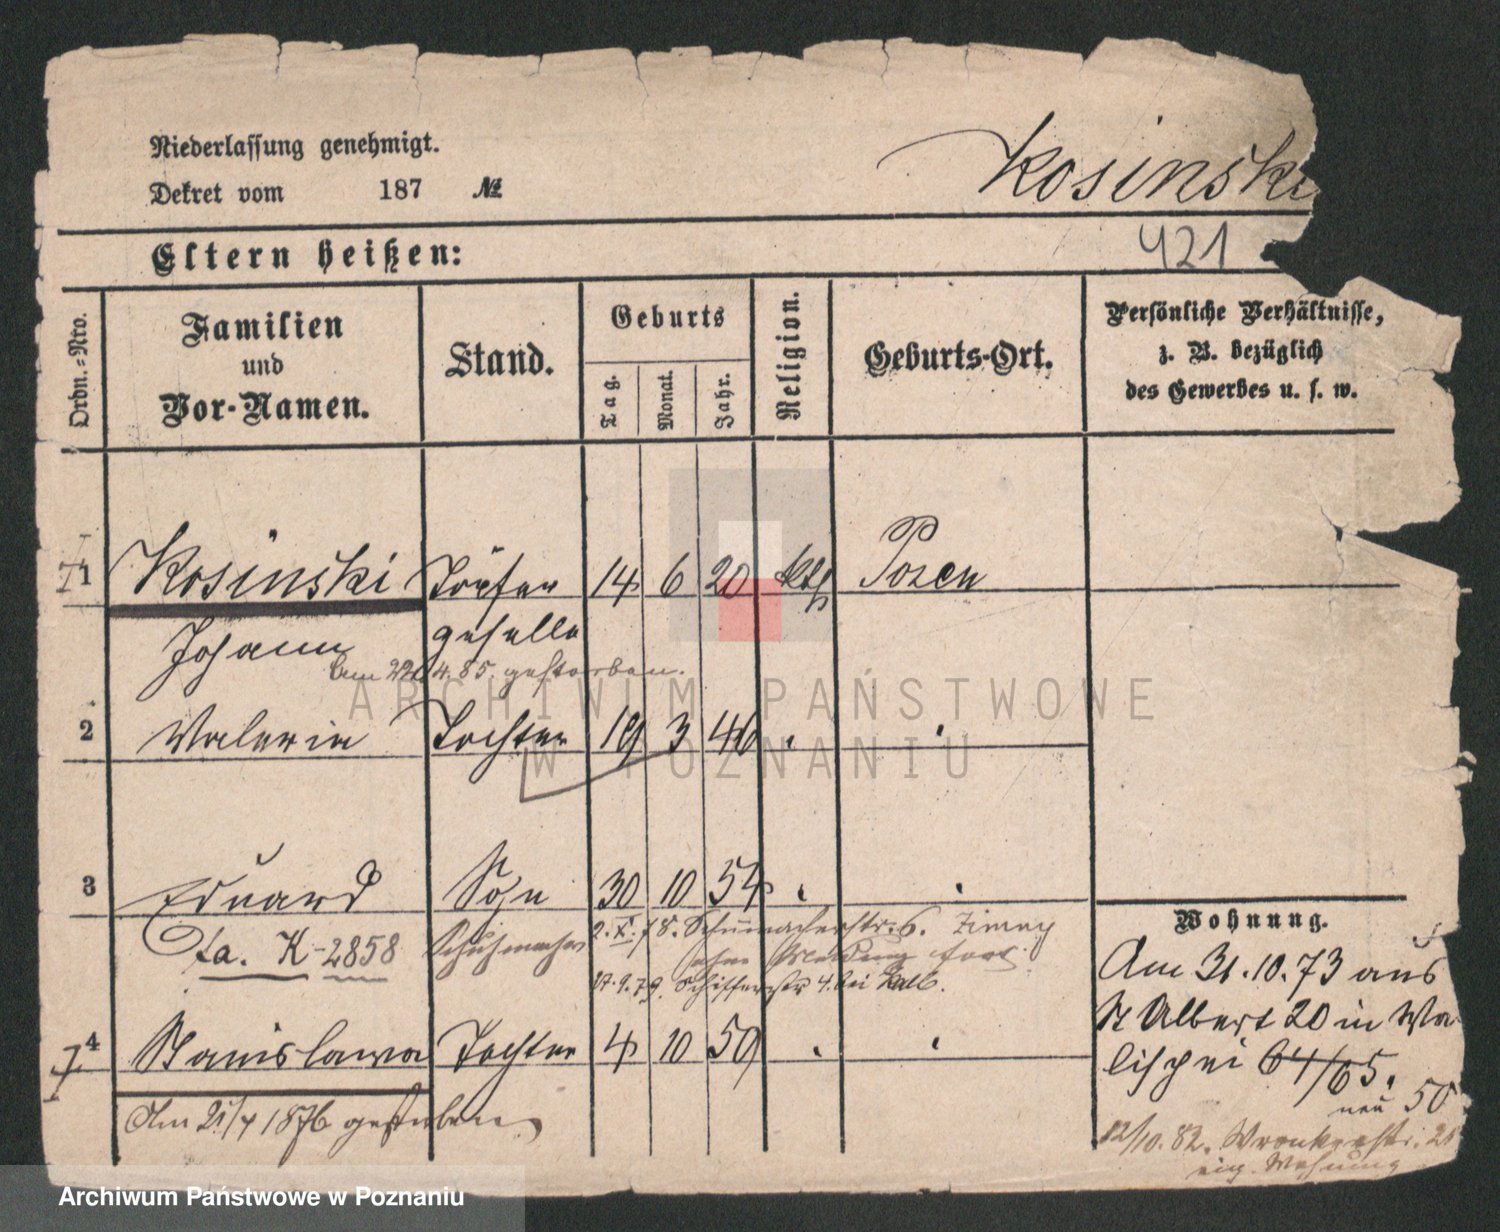 Niederlassung genehmigt.
Dekret vom 187 №
Kosinski
421
Eltern heißen:
Ordn.-Nro.
Familien und Vor-Namen.
Stand.
Geburts
Tag.
Monat.
Jahr.
Religion.
Geburts-Ort.
Persönliche Verhältnisse,
z. B. bezüglich
des Gewerbes u. s. w.
1 Kosinski Töpfer 14 6 20 kth Posen
Johann geselle
Am 22 4. 85. gestorben.
2 Valeria Tochter 19 3 46 "
3 Eduard Sohn 30 10 54 " "
cfa. K-2858 Schuhmacher 2. X. 78. Schumacherstr. 6.
ohne Meldung fort.
17. 9. 79. Schifferstr 4. bei Kalb.
4 Stanislawa Tochter 4 10 59 " "
Am 21/4 1876 gestorben
Wohnung.
Am 31. 10. 73 aus
St Albert 20 in Wa-
lischei 64/65.
neu 50
12/10. 82. Wronkerstr. 21
eig. Wohnung
ARCHIWUM PAŃSTWOWE
W POZNANIU
Archiwum Państwowe w Poznaniu